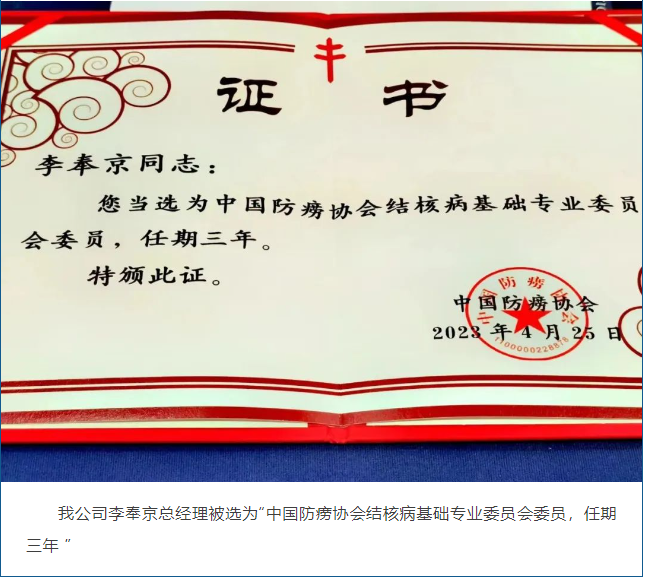 证 书
李奉京同志：
您当选为中国防痨协会结核病基础专业委员
会委员，任期三年。
特颁此证。
中国防痨协会
2023 年 4 月 25 日
中国防痨协会
1100000228878
我公司李奉京总经理被选为“中国防痨协会结核病基础专业委员会委员，任期
三年 ”